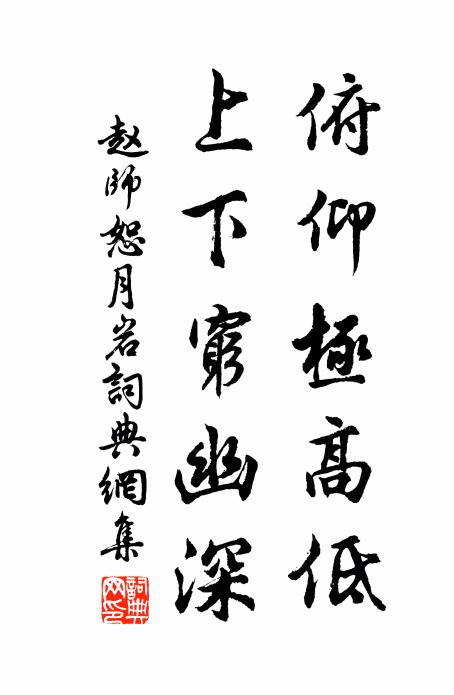 俯仰極高低
上下窮幽深
赵師恕月岩詞典網集
詞典網印